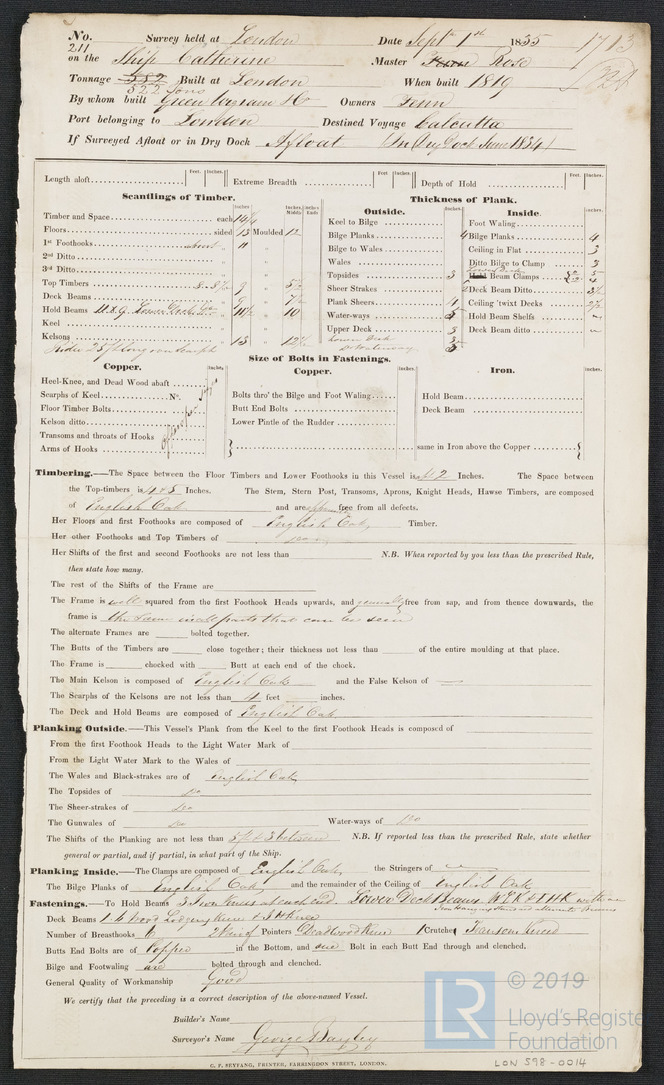 No. 211 Survey held at London Date Sept 1st 1835 1713
on the Ship Catherine Master Rose
Tonnage 582 Built at London When built 1819
522 Tons
By whom built Green Wigram & Co Owners Fenn
Port belonging to London Destined Voyage Calcutta
If Surveyed Afloat or in Dry Dock Afloat (In Dry Dock June 1834)
Length aloft Feet. Inches. Extreme Breadth Feet. Inches. Depth of Hold Feet. Inches.
Scantlings of Timber.
Inches. Inches. Middle Inches. Ends
Timber and Space each 14¾
Floors sided 13 Moulded 12
1st Foothooks about " 11 "
2nd Ditto " "
3rd Ditto " "
Top Timbers " 9 " 5½
Deck Beams " 9 " 7½
Hold Beams " 11½ " 10
Keel " "
Kelsons " 13 " 12½
Rider 25 ft long over scarph
Thickness of Plank.
Outside. Inches.
Keel to Bilge
Bilge Planks 4
Bilge to Wales
Wales
Topsides 3
Sheer Strakes
Plank Sheers 4
Water-ways 5
Upper Deck 3
Lower Deck 3
Do Waterway 5
Inside. Inches.
Foot Waling
Bilge Planks 4
Ceiling in Flat 3
Ditto Bilge to Clamp 3
Lower Deck
Hold Beam Clamps 5 4
Deck Beam Ditto 3½
Ceiling 'twixt Decks 2½
Hold Beam Shelfs –
Deck Beam ditto –
Size of Bolts in Fastenings.
Copper. Inches.
Heel-Knee, and Dead Wood abaft
Scarphs of Keel No.
Floor Timber Bolts
Kelson ditto
Transoms and throats of Hooks
Arms of Hooks
Of proper sizes
Copper. Inches.
Bolts thro' the Bilge and Foot Waling
Butt End Bolts
Lower Pintle of the Rudder
Iron. Inches.
Hold Beam
Deck Beam
same in Iron above the Copper
Timbering.—The Space between the Floor Timbers and Lower Foothooks in this Vessel is 2 Inches. The Space between
the Top-timbers is 4 & 5 Inches. The Stem, Stern Post, Transoms, Aprons, Knight Heads, Hawse Timbers, are composed
of English Oak and are apparently free from all defects.
Her Floors and first Foothooks are composed of English Oak Timber.
Her other Foothooks and Top Timbers of
Her Shifts of the first and second Foothooks are not less than N.B. When reported by you less than the prescribed Rule,
then state how many.
The rest of the Shifts of the Frame are
The Frame is well squared from the first Foothook Heads upwards, and generally free from sap, and from thence downwards, the
frame is the same in all parts that can be seen
The alternate Frames are bolted together.
The Butts of the Timbers are close together; their thickness not less than of the entire moulding at that place.
The Frame is chocked with Butt at each end of the chock.
The Main Kelson is composed of English Oak and the False Kelson of —
The Scarphs of the Kelsons are not less than 4 feet inches.
The Deck and Hold Beams are composed of English Oak
Planking Outside.—This Vessel's Plank from the Keel to the first Foothook Heads is composed of
From the first Foothook Heads to the Light Water Mark of
From the Light Water Mark to the Wales of
The Wales and Black-strakes are of English Oak
The Topsides of Do
The Sheer-strakes of Do
The Gunwales of Do Water-ways of Do
The Shifts of the Planking are not less than 5 ft & 3 between N.B. If reported less than the prescribed Rule, state whether
general or partial, and if partial, in what part of the Ship.
Planking Inside.—The Clamps are composed of English Oak the Stringers of —
The Bilge Planks of English Oak and the remainder of the Ceiling of English Oak
Fastenings.—To Hold Beams 3 Iron Knees at each end. Lower Deck Beams
Deck Beams 1 Wood Lodging Knee & 1 H Knee
Number of Breasthooks 6 Pointers Deadwood Knee 1 Crutches Transom Kneed
Butts End Bolts are of Copper in the Bottom, and one Bolt in each Butt End through and clenched.
Bilge and Footwaling are bolted through and clenched.
General Quality of Workmanship Good
We certify that the preceding is a correct description of the above-named Vessel.
Builder's Name
Surveyor's Name George Bayley
C. F. SEYFANG, PRINTER, FARRINGDON STREET, LONDON.
LR © 2019
Lloyd's Register
Foundation
LON 598-0014